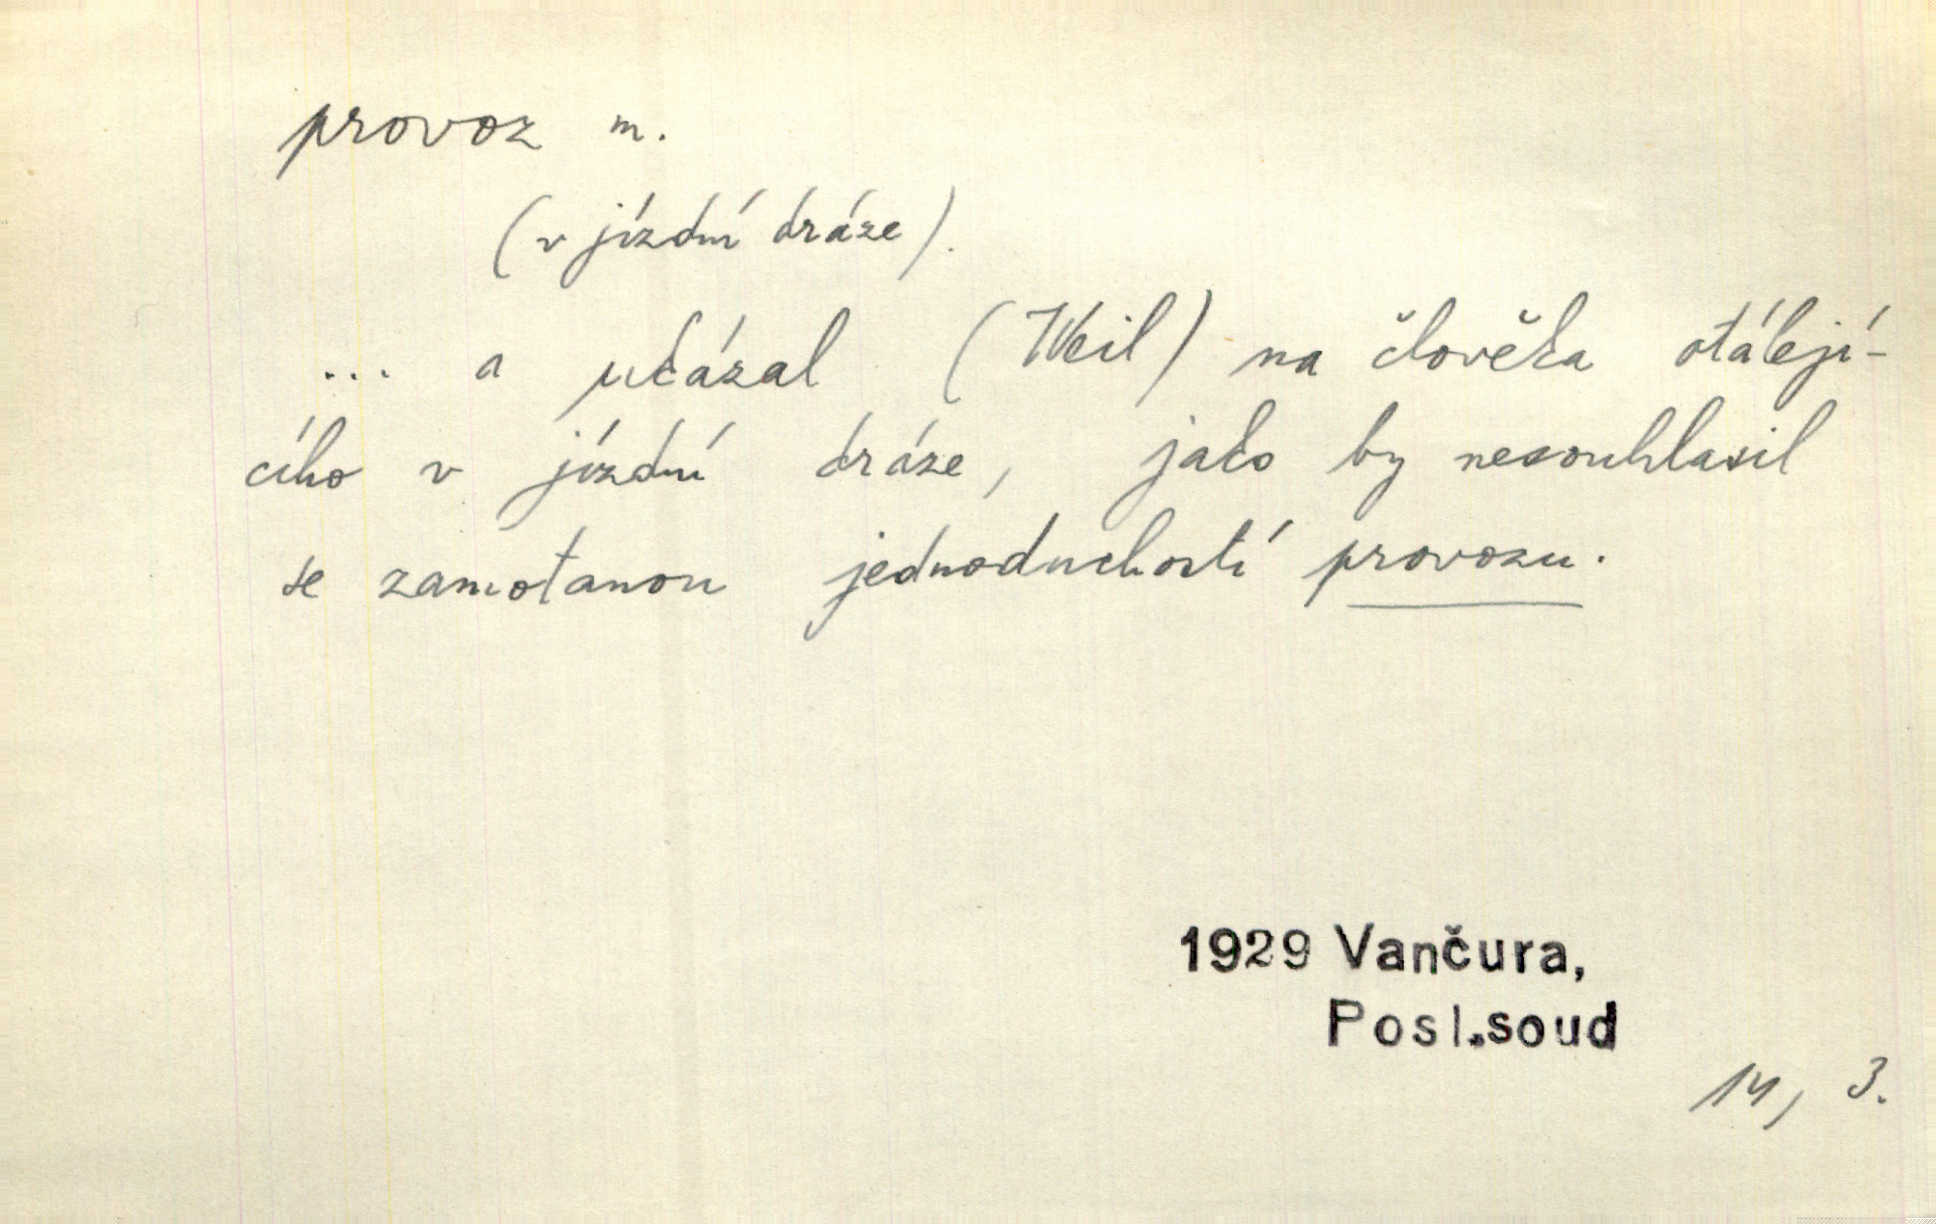 provoz m.
(v jízdní dráze).
... a ukázal (Weil) na člověka otálejí-
cího v jízdní dráze, jako by nesouhlasil
se zamotanou jednoduchostí provozu.
1929 Vančura,
Posl.soud
14, 3.